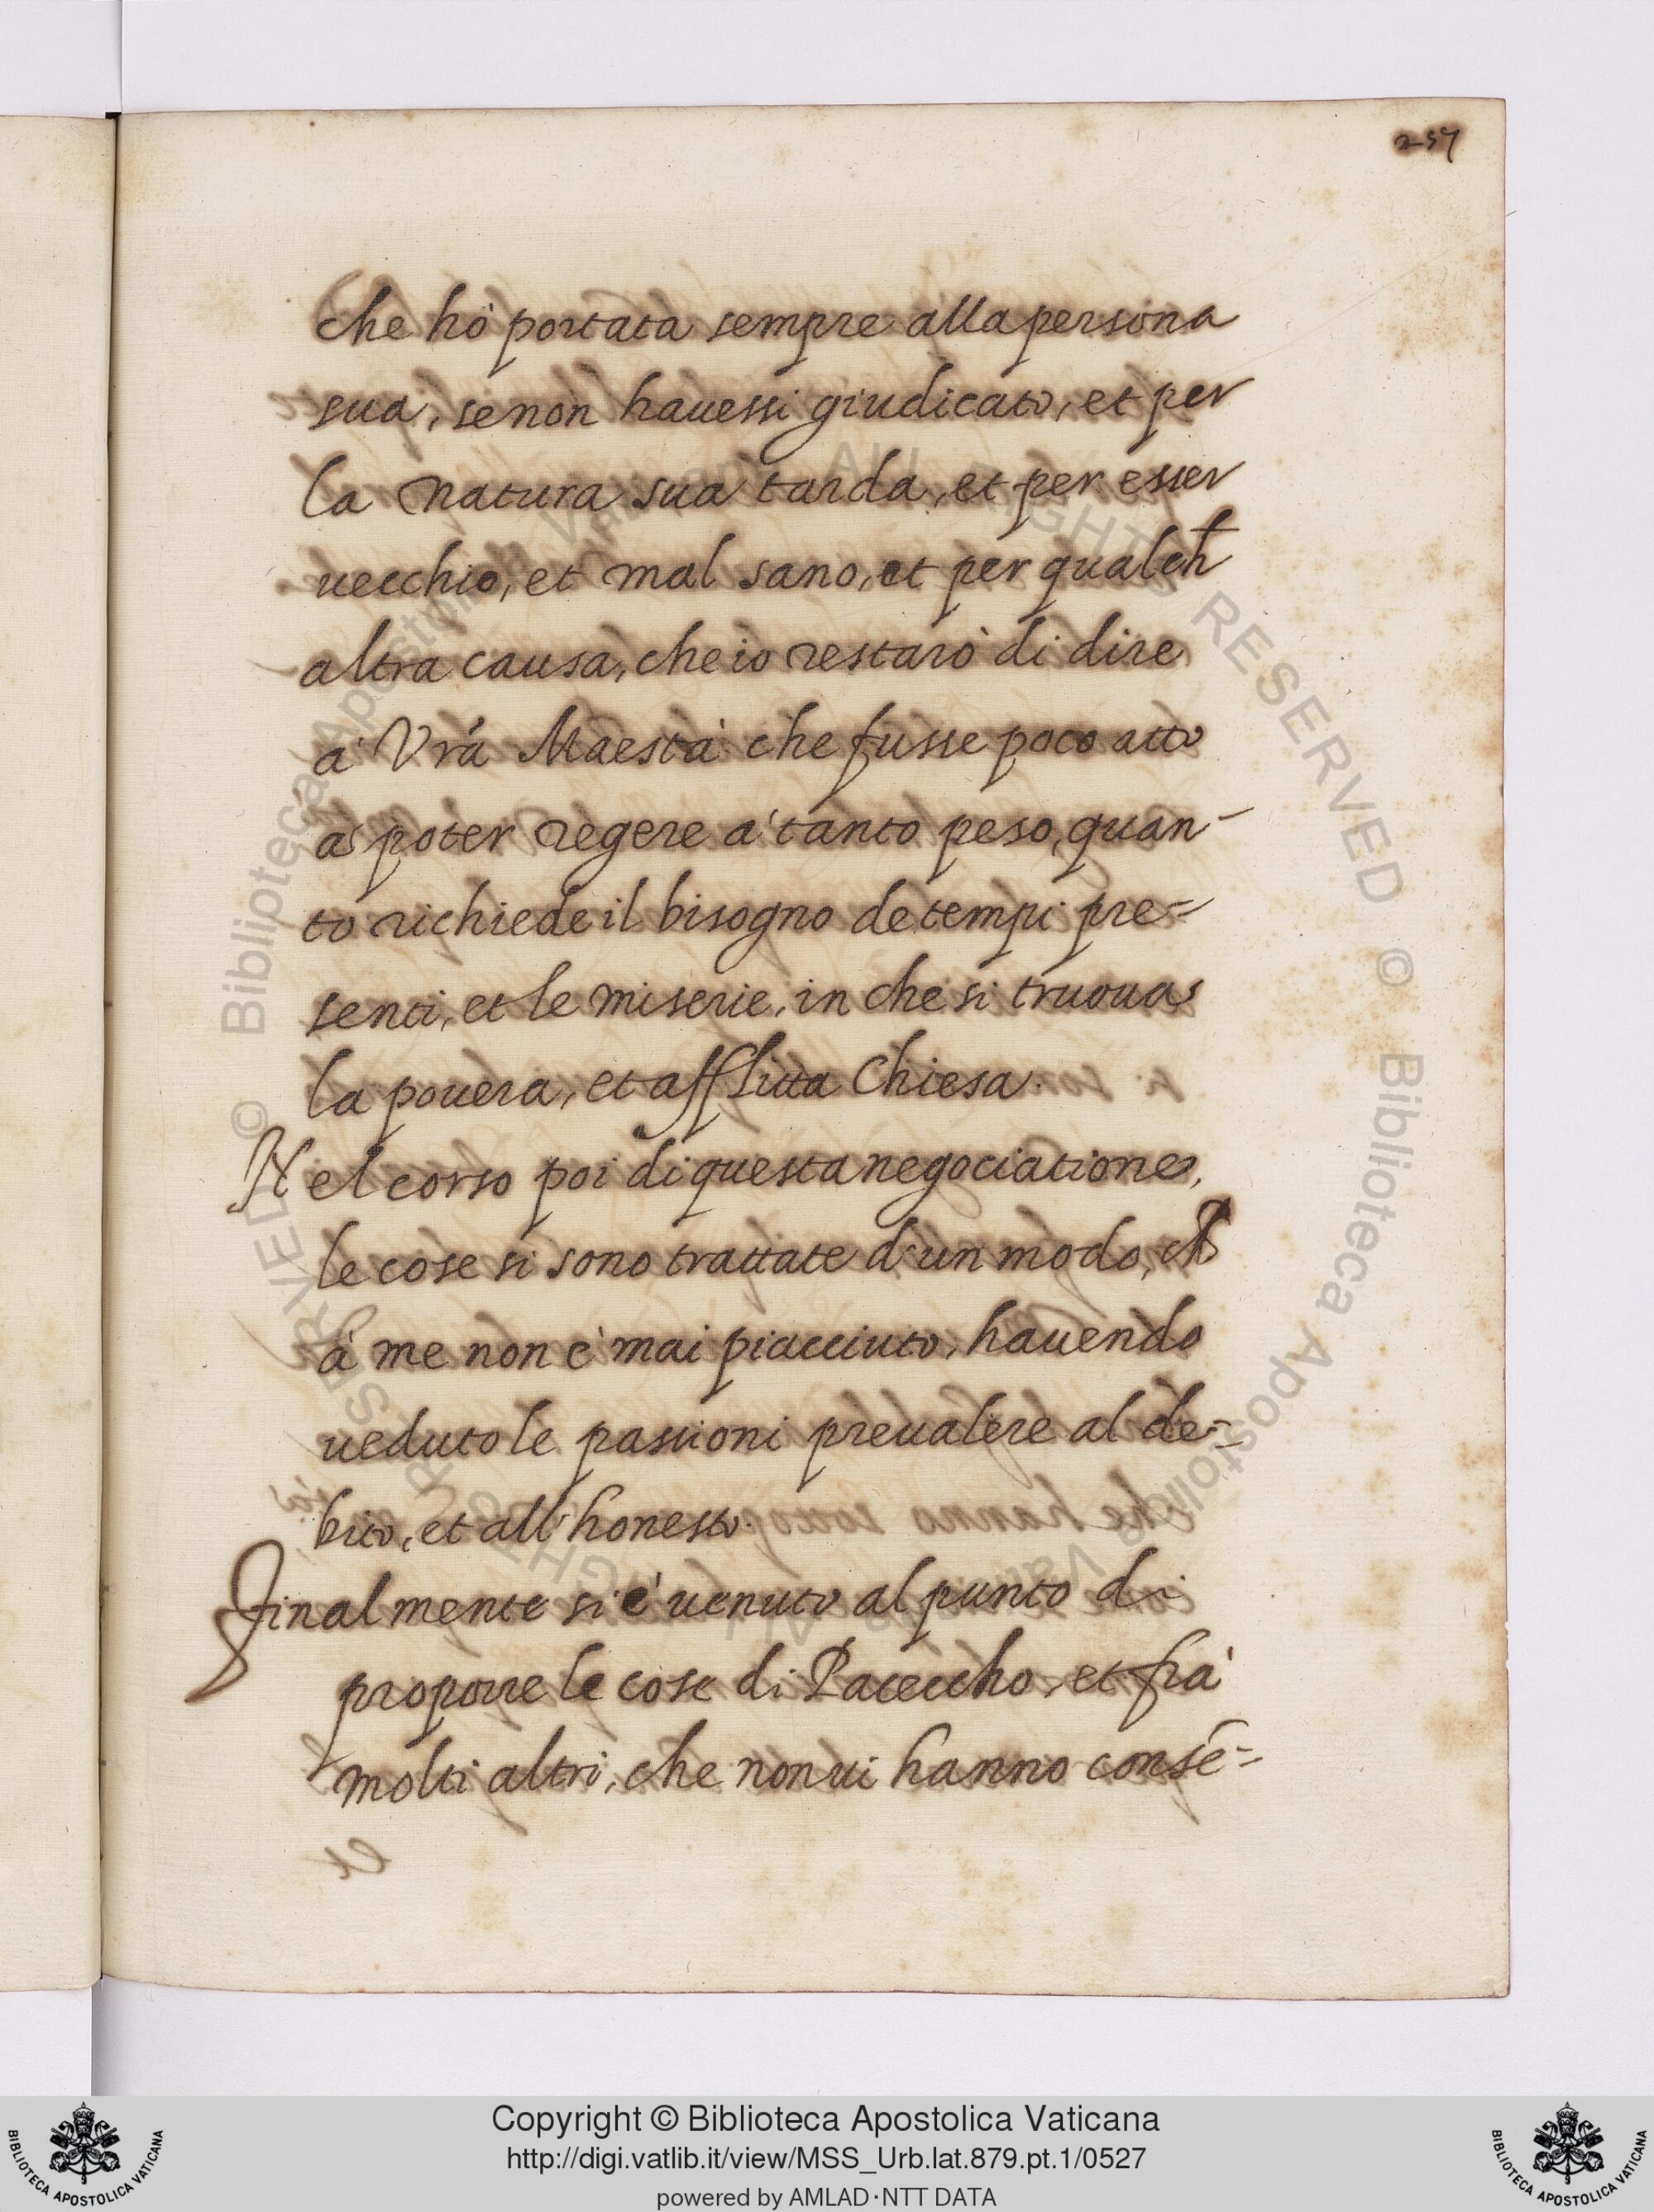 257
che hò portata sempre alla persona
sua, se non hauessi giudicato, et per
la natura sua tarda, et per esser
uecchio, et mal sano, et per qualch̄
altra causa, che io restarò di dire
à Vrã Maestà che fusse poco atto
à poter regere à tanto peso, quan-
to richiede il bisogno de tempi pre=
senti, et le miserie, in che si truoua
la pouera, et afflitta Chiesa.
Nel corso poi di questa negociatione,
le cose si sono trattate d'un modo, ch̄
à me non è mai piacciuto, hauendo
ueduto le passioni preualere al de=
bito, et all'honesto.
Finalmente si è uenuto al punto di
proporre le cose di Paceccho, et frà
molti altri, che non ui hanno conse=
© Biblioteca Apostolica Vaticana ALL RIGHTS RESERVED © Biblioteca Apostolica Vaticana ALL RIGHTS RESERVED
BIBLIOTECA APOSTOLICA VATICANA
Copyright © Biblioteca Apostolica Vaticana
http://digi.vatlib.it/view/MSS_Urb.lat.879.pt.1/0527
powered by AMLAD·NTT DATA
BIBLIOTECA APOSTOLICA VATICANA